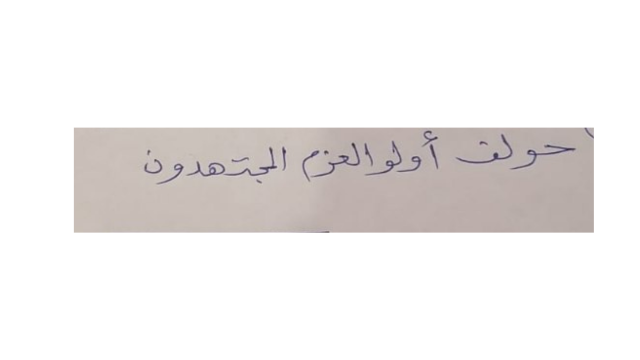 حولك أولو العزم المجتهدون